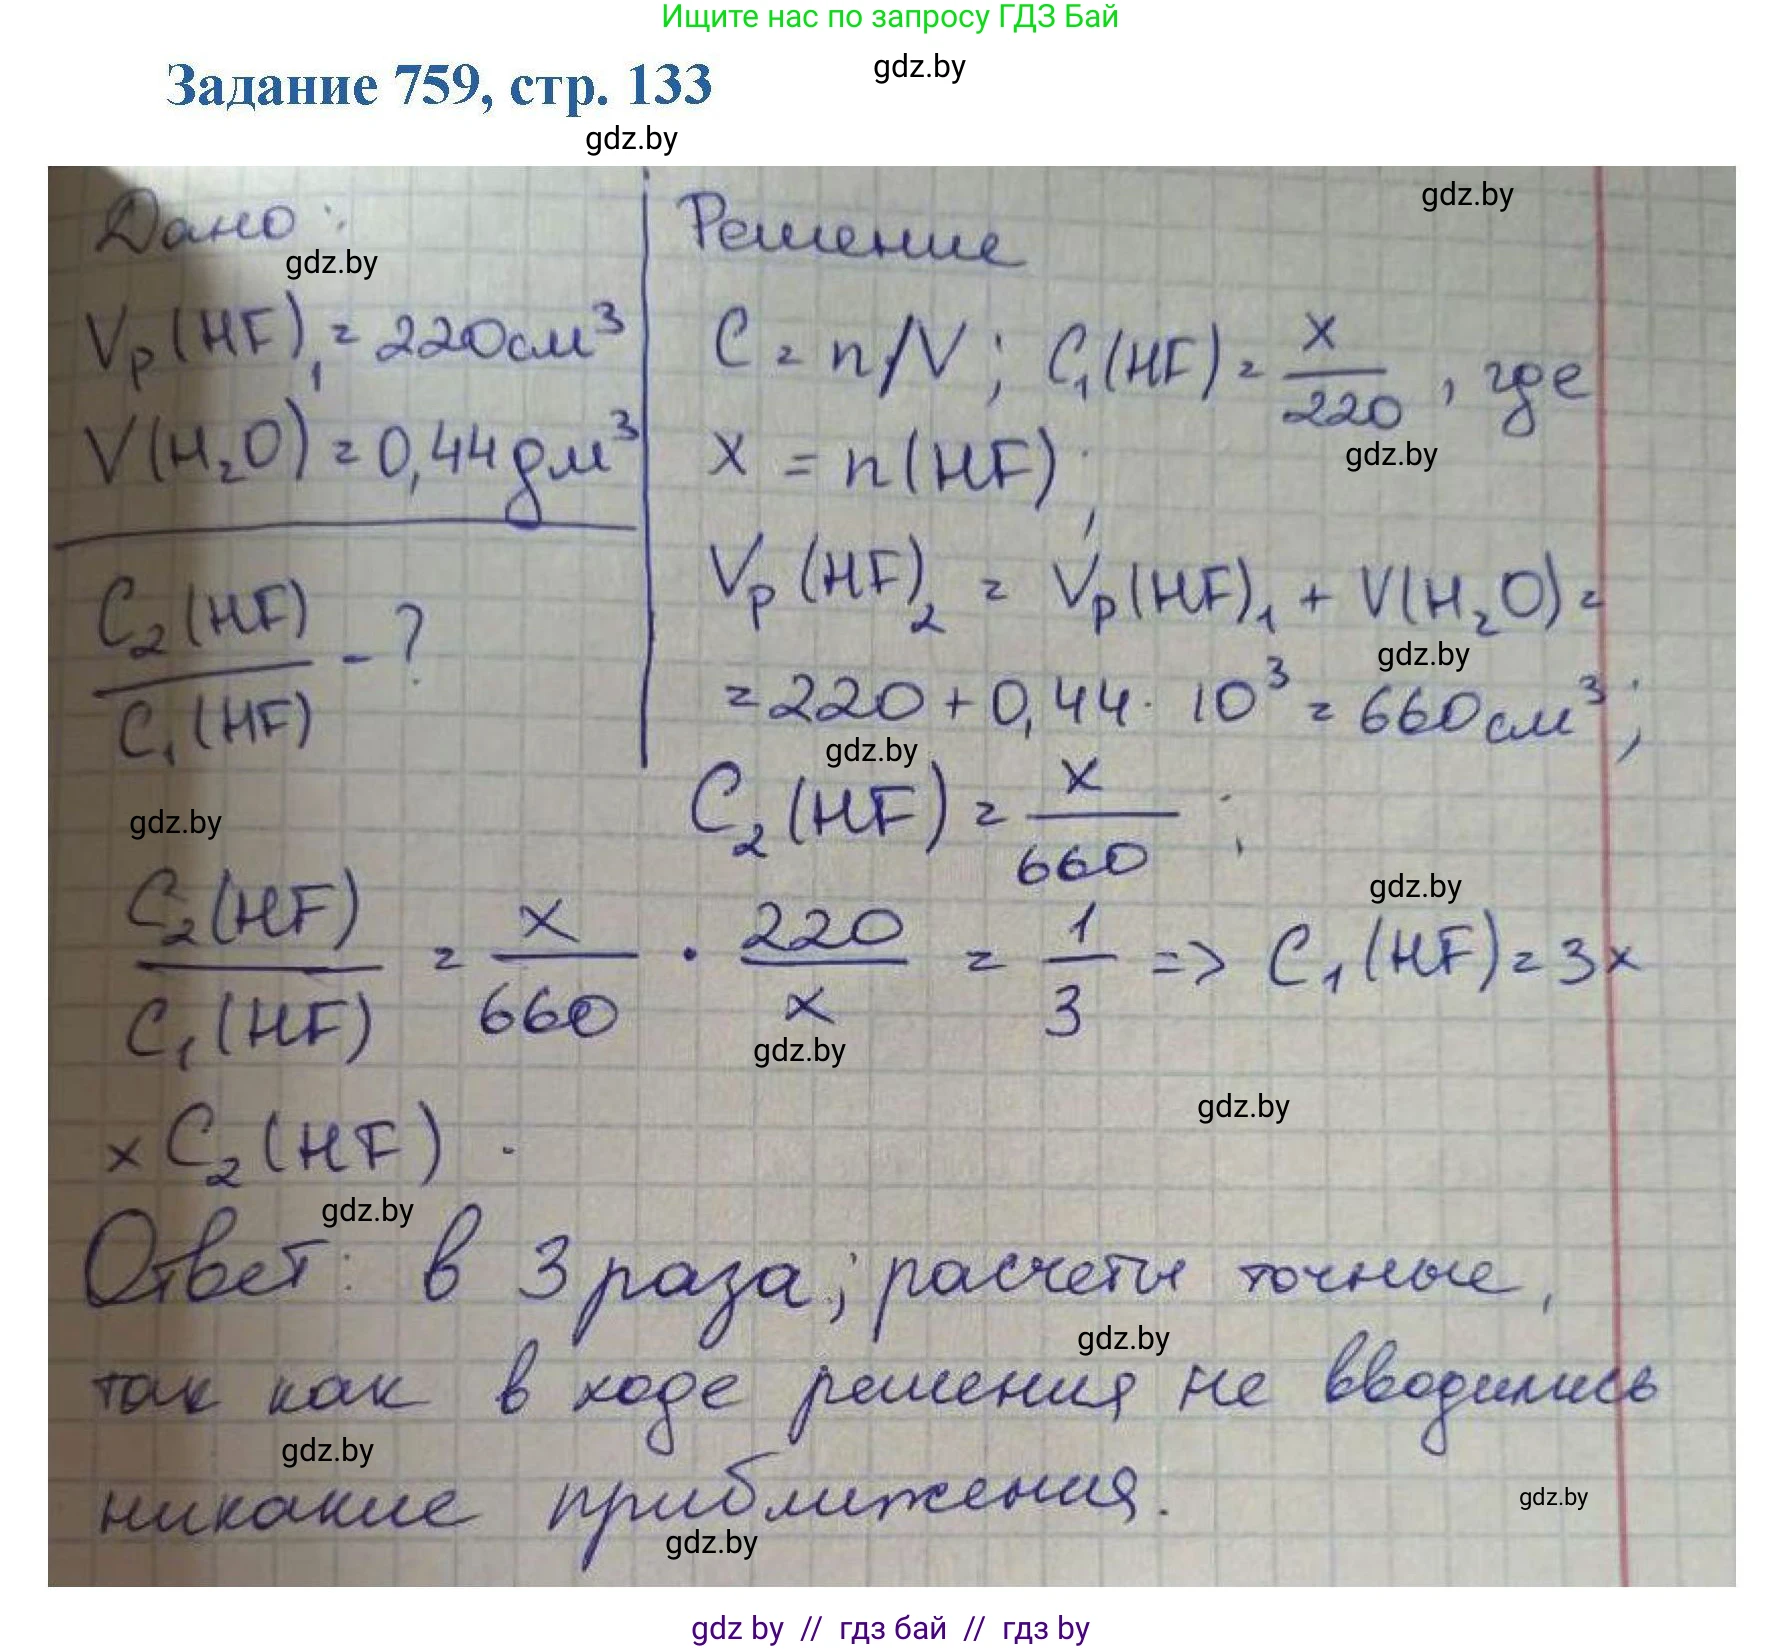 Ищите нас по запросу ГДЗ Бай
Задание 759, стр. 133
gdz.by
gdz.by
Дано:
gdz.by
Vр(HF)₁ = 220см³
V(H₂O) = 0,44дм³
C₂(HF)/C₁(HF) - ?
gdz.by
Решение
gdz.by
C = n/V; C₁(HF) = x/220, где
gdz.by
x = n(HF);
Vр(HF)₂ = Vр(HF)₁ + V(H₂O) =
gdz.by
= 220 + 0,44 · 10³ = 660см³;
gdz.by
C₂(HF) = x/660;
gdz.by
C₂(HF)/C₁(HF) = x/660 · 220/x = 1/3 => C₁(HF) = 3×
gdz.by
gdz.by
×C₂(HF).
gdz.by
Ответ: в 3 раза; расчеты точные,
gdz.by
так как в ходе решения не вводились
gdz.by
никакие приближения.
gdz.by
gdz.by
gdz by // гдз бай // гдз by